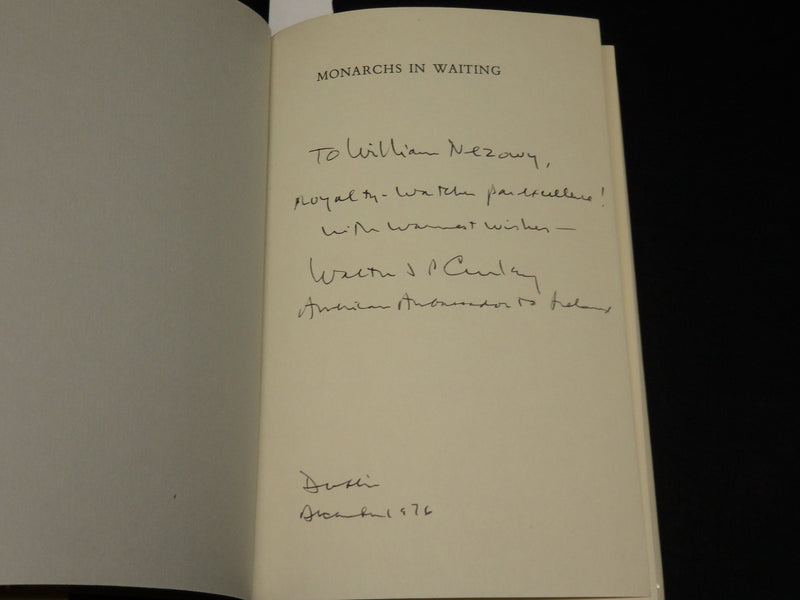 MONARCHS IN WAITING
To William Nezowy,
royalty-watcher par excellence!
with warmest wishes—
Walter J P Curley
American Ambassador to Ireland
Dublin
December 1976